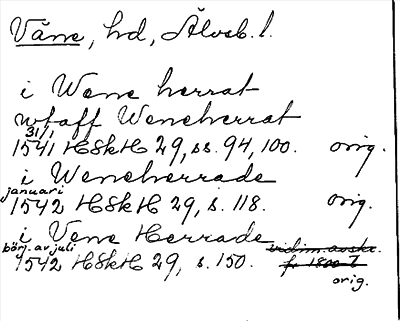 Väne, hd, Älvsb. l.
i Wene herrat
wtaff Weneherrat
31/1
1541 HSkH 29, ss. 94, 100. orig.
i Weneherrade
januari
1542 HSkH 29, s. 118. orig.
i Vene Herrade
börj. av juli vidim. avskr.
1542 HSkH 29, s. 150. fr. 1800-t
orig.